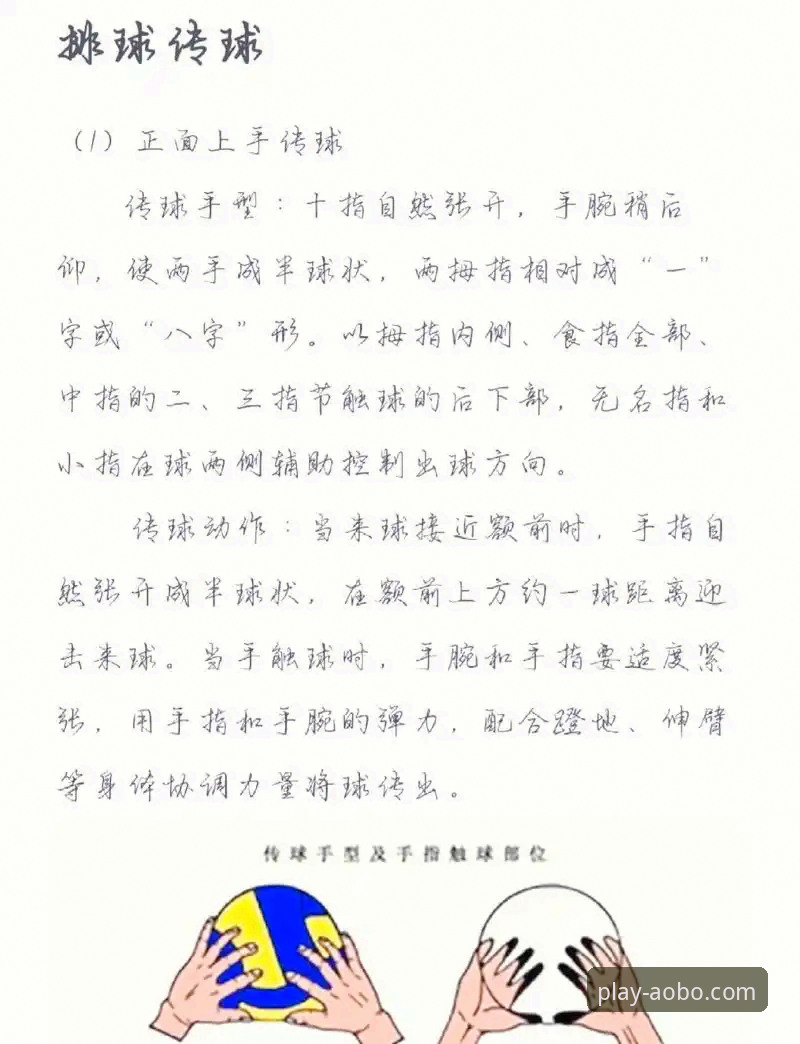 排球传球
（1）正面上手传球
传球手型：十指自然张开，手腕稍后
仰，使两手成半球状，两拇指相对成“一”
字或“八字”形。以拇指内侧、食指全部、
中指的二、三指节触球的后下部，无名指和
小指在球两侧辅助控制出球方向。
传球动作：当来球接近额前时，手指自
然张开成半球状，在额前上方约一球距离迎
击来球。当手触球时，手腕和手指要适度紧
张，用手指和手腕的弹力，配合蹬地、伸臂
等身体协调力量将球传出。
传球手型及手指触球部位
play-aobo.com